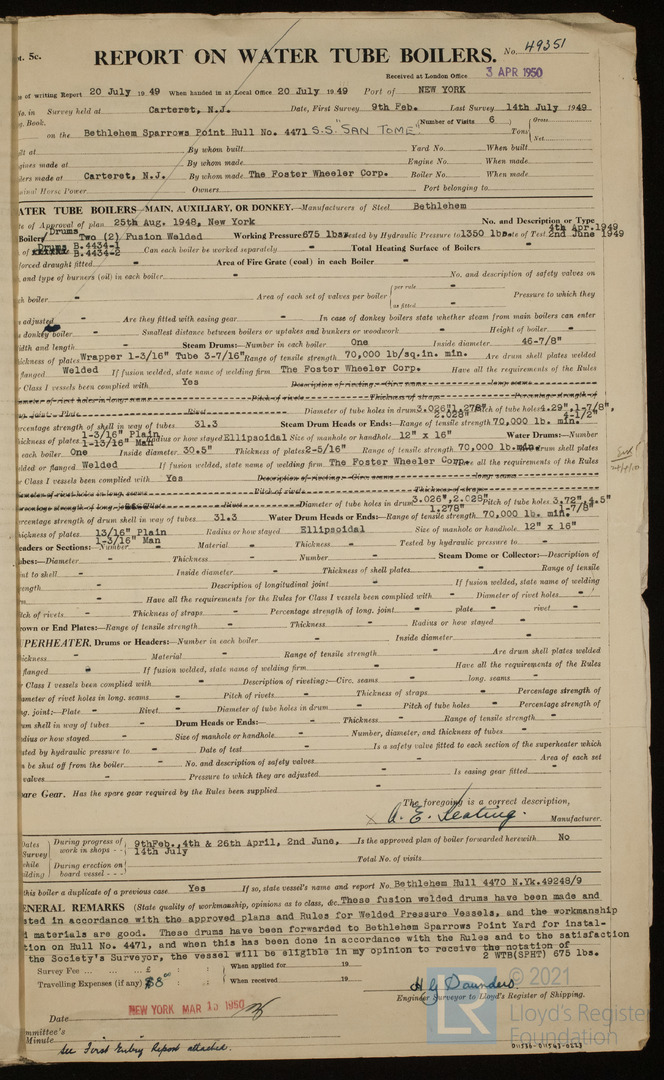 5c.
REPORT ON WATER TUBE BOILERS.
No. 49351
Received at London Office 3 APR 1950
of writing Report 20 July 1949 When handed in at Local Office 20 July 1949 Port of NEW YORK
No. in Survey held at Carteret, N.J. Date, First Survey 9th Feb. Last Survey 14th July 1949
Book. (Number of Visits 6 ) Gross
on the Bethlehem Sparrows Point Hull No. 4471 S.S. "SAN TOME" Tons Net
at By whom built Yard No. When built
made at By whom made Engine No. When made
made at Carteret, N.J. By whom made The Foster Wheeler Corp. Boiler No. When made
Horse Power Owners Port belonging to
WATER TUBE BOILERS—MAIN, AUXILIARY, OR DONKEY.—Manufacturers of Steel Bethlehem
of Approval of plan 25th Aug. 1948, New York No. and Description or Type
4th Apr. 1949
Boiler Drums Two (2) Fusion Welded Working Pressure 675 lbs. Tested by Hydraulic Pressure to 1350 lbs. Date of Test 2nd June 1949
of Drums B.4434-1
B.4434-2 Can each boiler be worked separately - Total Heating Surface of Boilers -
forced draught fitted - Area of Fire Grate (coal) in each Boiler -
and type of burners (oil) in each boiler - No. and description of safety valves on
boiler - Area of each set of valves per boiler per rule - as fitted - Pressure to which they
adjusted - Are they fitted with easing gear - In case of donkey boilers state whether steam from main boilers can enter
donkey boiler - Smallest distance between boilers or uptakes and bunkers or woodwork - Height of boiler -
Width and length - Steam Drums:—Number in each boiler One Inside diameter 46-7/8"
thickness of plates Wrapper 1-3/16" Tube 3-7/16" Range of tensile strength 70,000 lb/sq.in. min. Are drum shell plates welded
flanged Welded If fusion welded, state name of welding firm The Foster Wheeler Corp. Have all the requirements of the Rules
Class I vessels been complied with Yes Description of riveting:—Circ. seams long. seams
Diameter of rivet holes in long. seams Pitch of rivets Thickness of straps Percentage strength of
long. joint:—Plate Rivet Diameter of tube holes in drum 3.026" 1.278" 2.028" Pitch of tube holes 4.29", 1-7/8", 4-1/2"
percentage strength of shell in way of tubes 31.3 Steam Drum Heads or Ends:—Range of tensile strength 70,000 lb. min.
thickness of plates 1-3/16" Plain 1-13/16" Man Radius or how stayed Ellipsoidal Size of manhole or handhole 12" x 16" Water Drums:—Number
each boiler One Inside diameter 30.5" Thickness of plates 2-5/16" Range of tensile strength 70,000 lb.min. Are drum shell plates
welded or flanged Welded If fusion welded, state name of welding firm The Foster Wheeler Corp. Have all the requirements of the Rules
Class I vessels been complied with Yes Description of riveting:—Circ. seams long. seams
Diameter of rivet holes in long. seams Pitch of rivets Thickness of straps
Percentage strength of long. joint:—Plate Rivet Diameter of tube holes in drum 3.026", 2.028" 1.278" Pitch of tube holes 3.72", 4.5" 1-7/8"
percentage strength of drum shell in way of tubes 31.3 Water Drum Heads or Ends:—Range of tensile strength 70,000 lb. min.
thickness of plates 13/16" Plain 1-3/16" Man Radius or how stayed Ellipsoidal Size of manhole or handhole 12" x 16"
Headers or Sections:—Number - Material - Thickness - Tested by hydraulic pressure to -
Tubes:—Diameter - Thickness - Number - Steam Dome or Collector:—Description of
joint to shell - Inside diameter - Thickness of shell plates - Range of tensile
strength - Description of longitudinal joint - If fusion welded, state name of welding
firm - Have all the requirements for the Rules for Class I vessels been complied with - Diameter of rivet holes -
Pitch of rivets - Thickness of straps - Percentage strength of long. joint - plate - rivet -
Crown or End Plates:—Range of tensile strength - Thickness - Radius or how stayed -
SUPERHEATER. Drums or Headers:—Number in each boiler - Inside diameter -
thickness - Material - Range of tensile strength - Are drum shell plates welded
flanged - If fusion welded, state name of welding firm - Have all the requirements of the Rules
Class I vessels been complied with - Description of riveting:—Circ. seams - long. seams -
Diameter of rivet holes in long. seams - Pitch of rivets - Thickness of straps - Percentage strength of
long. joint:—Plate - Rivet - Diameter of tube holes in drum - Pitch of tube holes - Percentage strength of
drum shell in way of tubes - Drum Heads or Ends:—Thickness - Range of tensile strength -
Radius or how stayed - Size of manhole or handhole - Number, diameter, and thickness of tubes -
tested by hydraulic pressure to - Date of test - Is a safety valve fitted to each section of the superheater which
can be shut off from the boiler - No. and description of safety valves - Area of each set
valves - Pressure to which they are adjusted - Is easing gear fitted -
Spare Gear. Has the spare gear required by the Rules been supplied -
The foregoing is a correct description,
A. E. Keating. Manufacturer.
Dates Survey while building
During progress of work in shops - - 9th Feb., 4th & 26th April, 2nd June, 14th July Is the approved plan of boiler forwarded herewith No
During erection on board vessel - - - Total No. of visits
this boiler a duplicate of a previous case Yes If so, state vessel's name and report No. Bethlehem Hull 4470 N.Yk.49248/9
GENERAL REMARKS (State quality of workmanship, opinions as to class, &c. These fusion welded drums have been made and
tested in accordance with the approved plans and Rules for Welded Pressure Vessels, and the workmanship
materials are good. These drums have been forwarded to Bethlehem Sparrows Point Yard for instal-
tion on Hull No. 4471, and when this has been done in accordance with the Rules and to the satisfaction
the Society's Surveyor, the vessel will be eligible in my opinion to receive the notation of
2 WTB(SPHT) 675 lbs.
Survey Fee ... ... ... £ : : When applied for 19
Travelling Expenses (if any) $8.00 When received 19
H G Saunders
Engineer Surveyor to Lloyd's Register of Shipping.
NEW YORK MAR 15 1950
Date
Committee's Minute
See First Entry Report attached.
© 2021
LR
Lloyd's Register
Foundation
011536-011543-0223